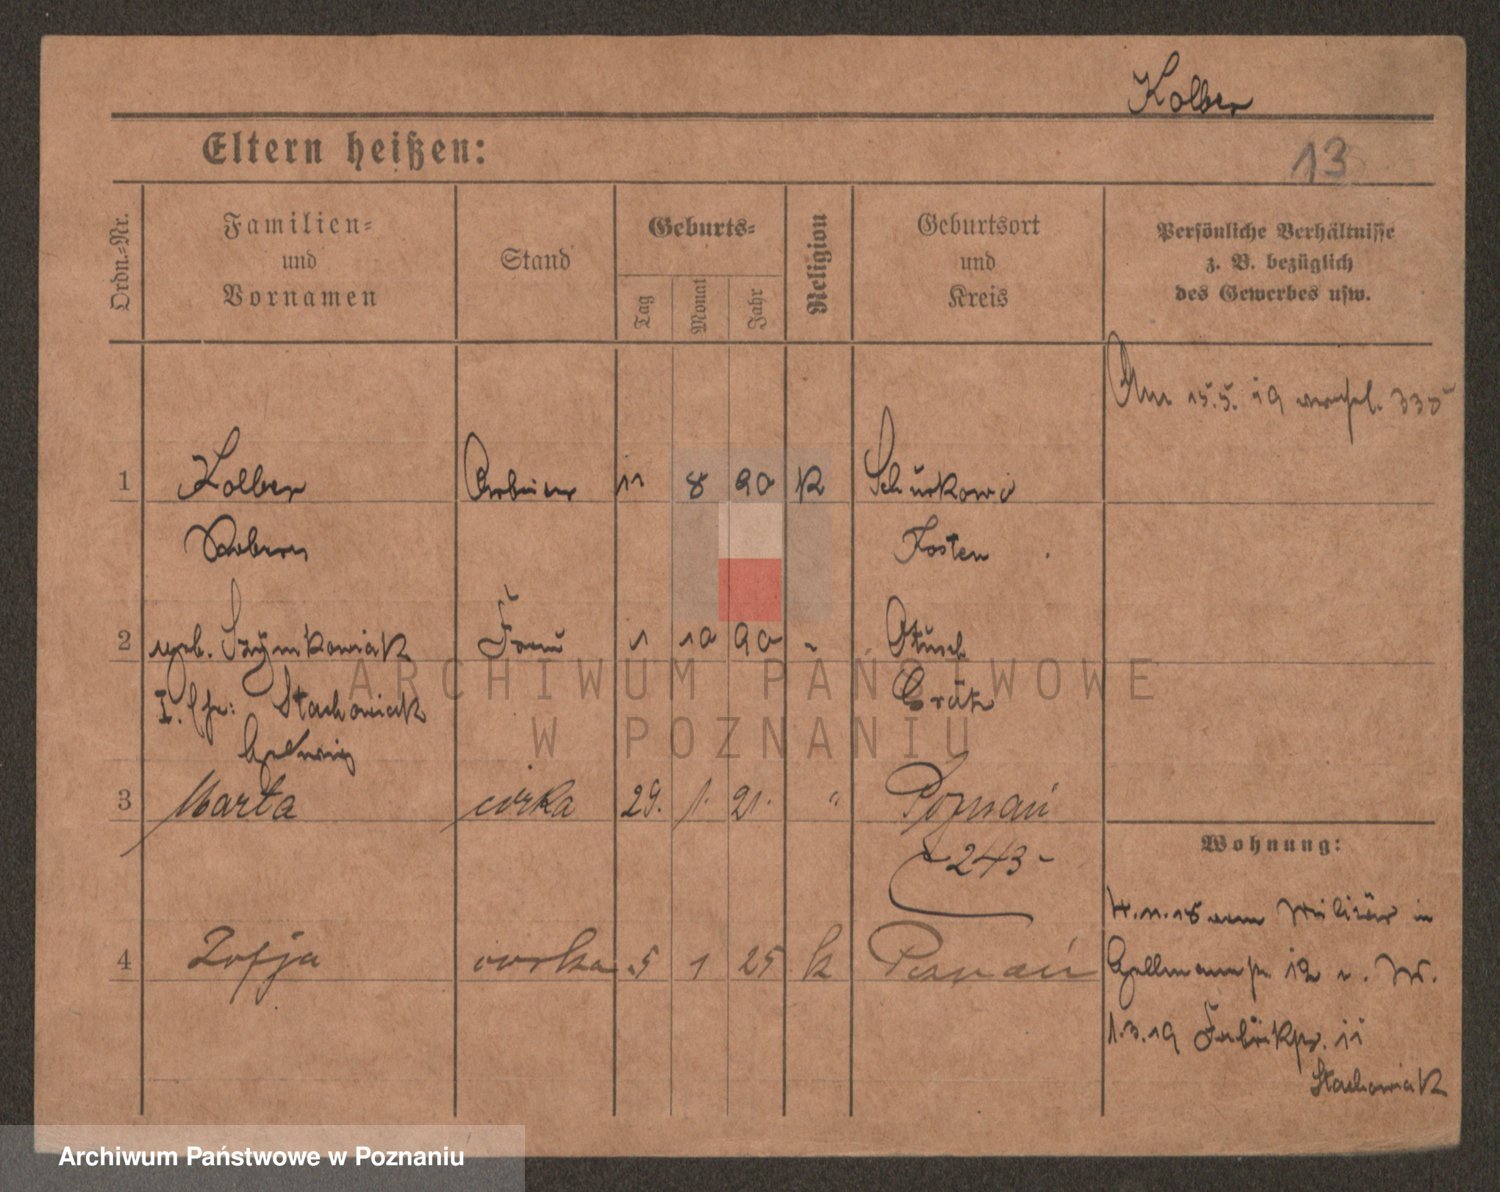 Kolber
Eltern heißen:
13
Ordn.-Nr.
Familien-
und
Vornamen
Stand
Geburts-
Tag
Monat
Jahr
Religion
Geburtsort
und
Kreis
Persönliche Verhältnisse
z. B. bezüglich
des Gewerbes usw.
Am 15.5. 19
1 Kolber Arbeiter 11 8 90 K
Kosten
2 geb. Szymkowiak Frau 1 10 90 Otusch
Stachowiak Grätz
Hedwig
3 Marta córka 29. 1. 21. " Poznań
-243-
Wohnung:
4 Zofja córka 5 1 25 k Poznań
Militär in
12
1.3.19 11
Stachowiak
ARCHIWUM PAŃSTWOWE
W POZNANIU
Archiwum Państwowe w Poznaniu